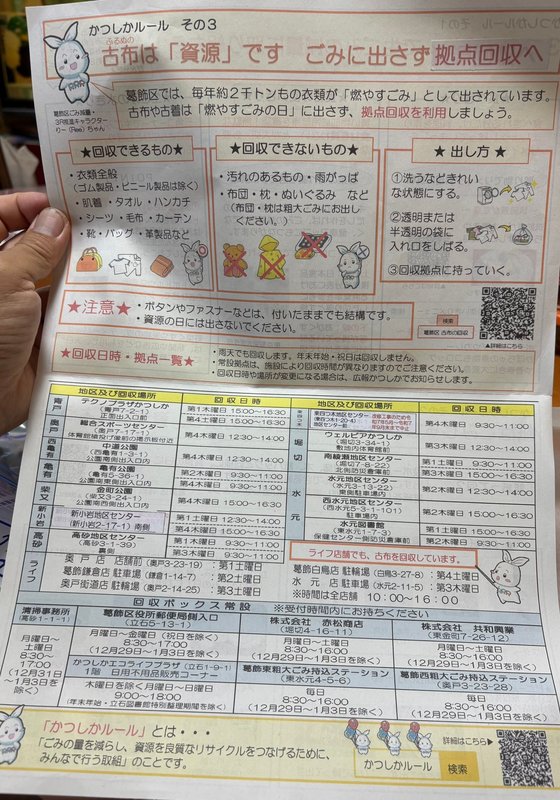 かつしかルール その3
ふるぬの
古布は「資源」です ごみに出さず 拠点回収へ
葛飾区では、毎年約2千トンもの衣類が「燃やすごみ」として出されています。
古布や古着は「燃やすごみの日」に出さず、拠点回収を利用しましょう。
葛飾区ごみ減量・
3R推進キャラクター
りー(Ree)ちゃん
★回収できるもの★
・衣類全般
(ゴム製品・ビニール製品は除く)
・肌着・タオル・ハンカチ
・シーツ・毛布・カーテン
・靴・バッグ・革製品など
★回収できないもの★
・汚れのあるもの・雨がっぱ
・布団・枕・ぬいぐるみ など
(布団・枕は粗大ごみにお出し
ください。)
★出し方★
①洗うなどきれい
な状態にする。
②透明または
半透明の袋に
入れ口をしばる。
③回収拠点に持っていく。
★注意★
・ボタンやファスナーなどは、付いたままでも結構です。
・資源の日には出さないでください。
検索
葛飾区 古布の回収
▲詳細はこちら
★回収日時・拠点一覧★
・雨天でも回収します。年末年始・祝日は回収しません。
・常設拠点は、施設により回収時間が異なりますのでご注意ください。
・回収日時や場所が変更になる場合は、広報かつしかでお知らせします。
地区及び回収場所 回収日時
青戸 テクノプラザかつしか
(青戸7-2-1)
正面出入口前
第1木曜日 15:00~16:30
第4土曜日 12:30~14:00
奥戸 総合スポーツセンター
(奥戸7-17-1)
体育館植込び裏前の掲示板付近
第4木曜日 12:30~14:00
西亀有 中道公園
(西亀有1-3-1)
公園南側出入口内
亀有 亀有公園
(亀有5-36-1)
公園南東側出入口内
第2木曜日 9:30~11:00
第4木曜日 9:30~11:00
柴又 金町公園
(柴又3-24-1)
公園南西側出入口内
第4木曜日 15:00~16:30
新小岩 新小岩地区センター
(新小岩2-17-1)南側
第1土曜日 12:30~14:00
第4木曜日 9:30~11:00
高砂 高砂地区センター
(高砂3-1-39)
裏側
第1土曜日 15:00~16:30
第3木曜日 9:30~11:00
ライフ
奥戸店 店舗前(奥戸3-23-19):第1土曜日
葛飾鎌倉店 駐車場(鎌倉1-14-7):第2土曜日
奥戸街道店 駐車場(奥戸2-14-25):第3土曜日
地区及び回収場所 回収日時
東四つ木地区センター
堀切 ウェルピアかつしか
(堀切3-34-1)
敷地内体育館前
第3木曜日 12:30~14:00
南綾瀬地区センター
(堀切7-8-22)
北側防災倉庫前
第1土曜日 9:30~11:00
水元 水元地区センター
(水元3-13-22)
東側駐車場内
第2木曜日 12:30~14:00
西水元地区センター
(西水元5-3-1-101)
駐車場内
第2木曜日 15:00~16:30
水元図書館
(東水元1-7-3)
保健センター側防災倉庫前
第1木曜日 9:30~11:00
第3木曜日 15:00~16:30
ライフ店舗でも、古布を回収しています。
葛飾白鳥店 駐車場(白鳥3-27-8):第4土曜日
水元店 駐車場(水元2-11-5):第3木曜日
※時間は全店舗 10:00~16:00
回収ボックス常設 ※受付時間内にお持ちください
清掃事務所
(高砂1-1-1)
月曜日~
土曜日
8:30~
17:00
(12月31日
~1月3日を
除く)
葛飾区役所郵便局側入口
(立石5-13-1)
月曜日~金曜日(祝日を除く)
8:30~17:00
(12月29日~1月3日を除く)
かつしかエコライフプラザ(立石1-9-1)
1階 日用不用品販売コーナー
木曜日を除く月曜日~日曜日
9:00~18:00
(年末年始・立石図書館特別整理期間を除く)
株式会社 赤松商店
(堀切4-16-11)
月曜日~土曜日
8:30~16:00
(12月29日~1月3日を除く)
葛飾東粗大ごみ持込ステーション
(東水元4-5-6)
毎日
8:30~16:00
(12月29日~1月3日を除く)
株式会社 共和興業
(東金町7-26-12)
月曜日~土曜日
8:30~16:00
(12月29日~1月3日を除く)
葛飾西粗大ごみ持込ステーション
(奥戸3-23-28)
毎日
8:30~16:00
(12月29日~1月3日を除く)
「かつしかルール」とは・・・
「ごみの量を減らし、資源を良質なリサイクルをつなげるために、
みんなで行う取組」のことです。
詳細はこちら▶
かつしかルール 検索